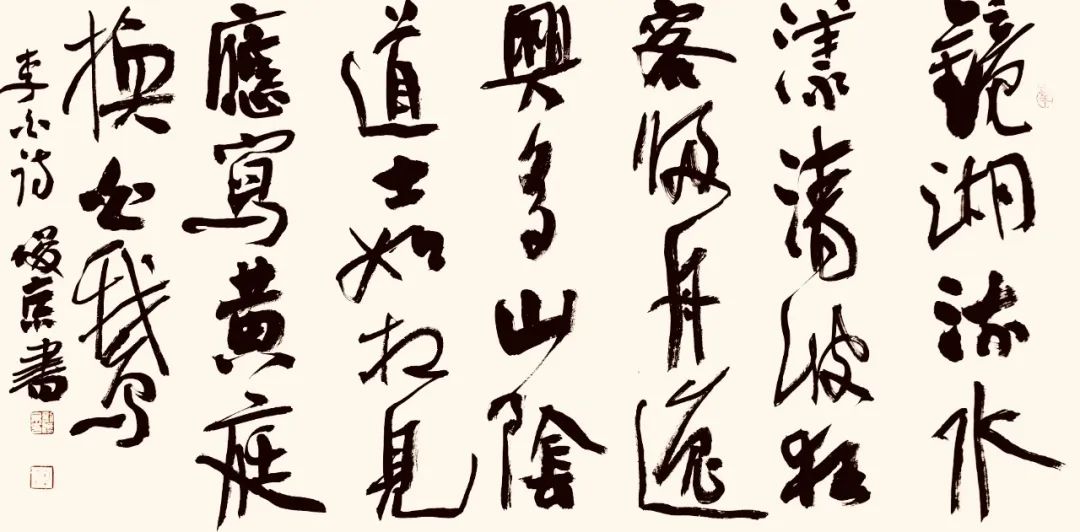 鏡湖流水
漾清波狂
客歸舟逸
興多山陰
道士如相見
應寫黄庭
換白鵝
李白诗 京書